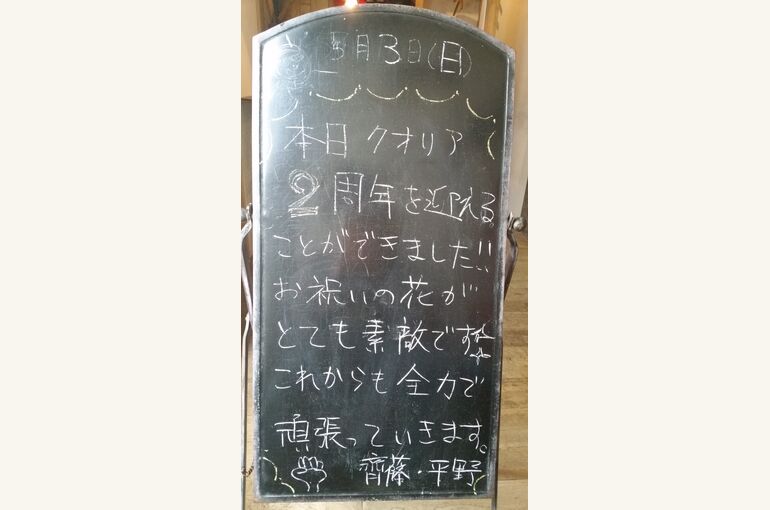 5月3日(日)
本日 クオリア
2周年を迎える
ことができました!!
お祝いの花が
とても素敵です
これからも全力で
頑張っていきます。
齊藤・平野